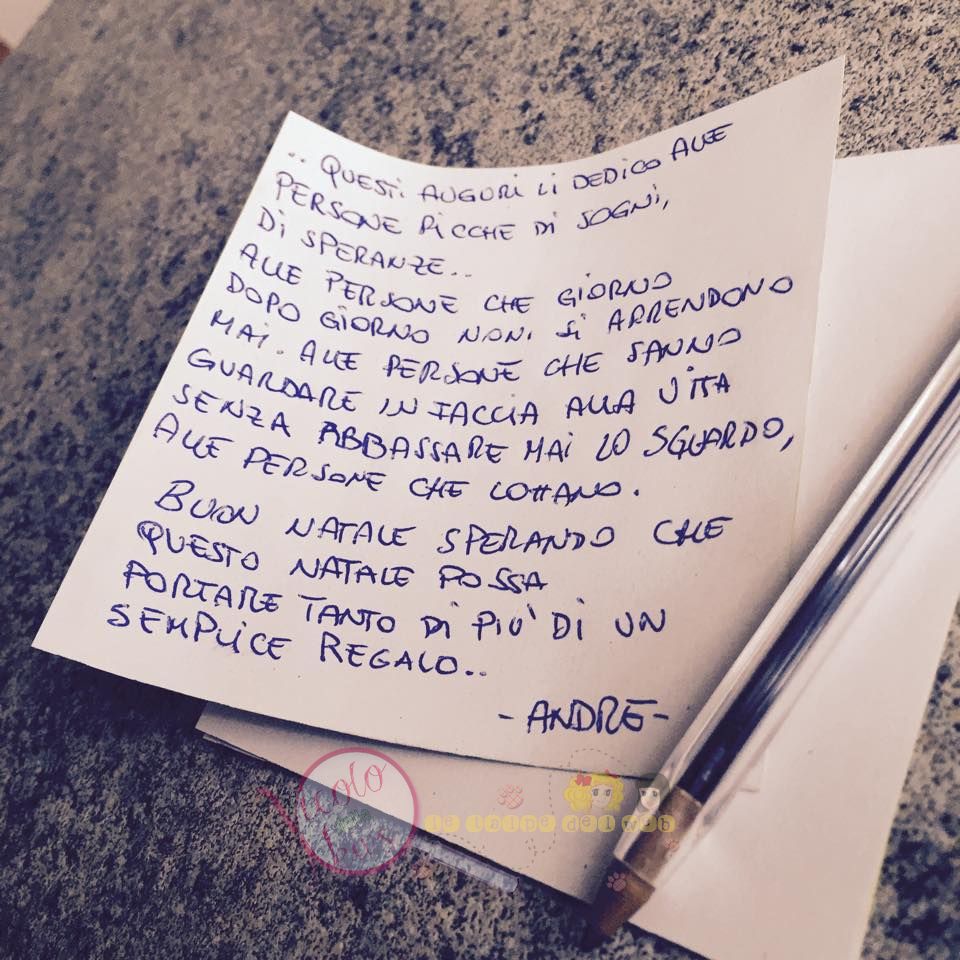 .. QUESTI AUGURI LI DEDICO ALLE
PERSONE RICCHE DI SOGNI,
DI SPERANZE..
ALLE PERSONE CHE GIORNO
DOPO GIORNO NON SI ARRENDONO
MAI. ALLE PERSONE CHE SANNO
GUARDARE IN FACCIA ALLA VITA
SENZA ABBASSARE MAI LO SGUARDO,
ALLE PERSONE CHE LOTTANO.
BUON NATALE SPERANDO CHE
QUESTO NATALE POSSA
PORTARE TANTO DI PIU' DI UN
SEMPLICE REGALO..
-ANDRE-
Vicolo
news
le talpe del web